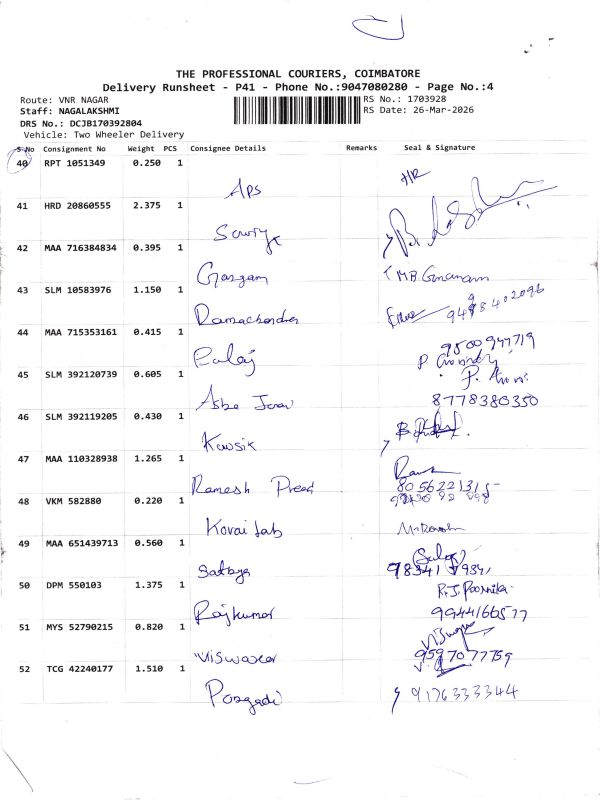 THE PROFESSIONAL COURIERS, COIMBATORE
Delivery Runsheet - P41 - Phone No.:9047080280 - Page No.:4
Route: VNR NAGAR RS No.: 1703928
Staff: NAGALAKSHMI RS Date: 26-Mar-2026
DRS No.: DCJB170392804
Vehicle: Two Wheeler Delivery
S.No Consignment No Weight PCS Consignee Details Remarks Seal & Signature
40 RPT 1051349 0.250 1
APS
41 HRD 20860555 2.375 1
42 MAA 716384834 0.395 1
43 SLM 10583976 1.150 1
Ramachandra
44 MAA 715353161 0.415 1
9500947719
45 SLM 392120739 0.605 1
8778380350
46 SLM 392119205 0.430 1
Kawsik
47 MAA 110328938 1.265 1
Ramesh
48 VKM 582880 0.220 1
Kovai Lab
49 MAA 651439713 0.560 1
Sathya
50 DPM 550103 1.375 1
R.J. Poornika
Rajkumar 9944166577
51 MYS 52790215 0.820 1
9597077759
52 TCG 42240177 1.510 1
9176333344